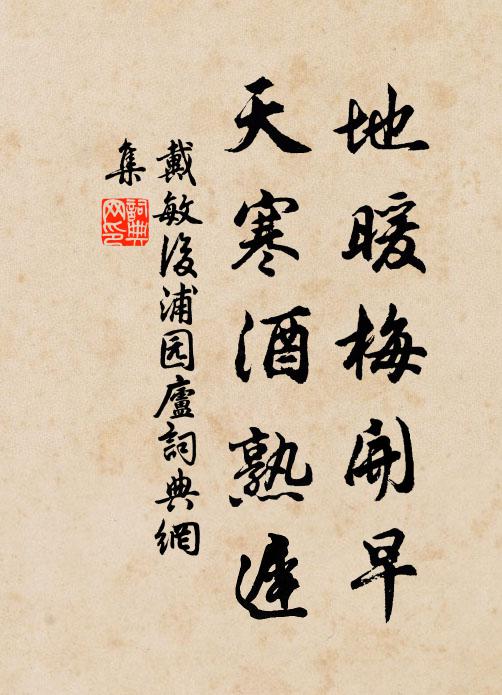 地暖梅開早
天寒酒熟遲
戴敏後浦园廬詞典網
集
詞典網印